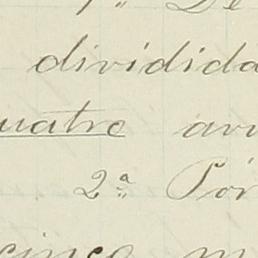 1.ª De
dividida
uatro av
2.ª Por
cinco m